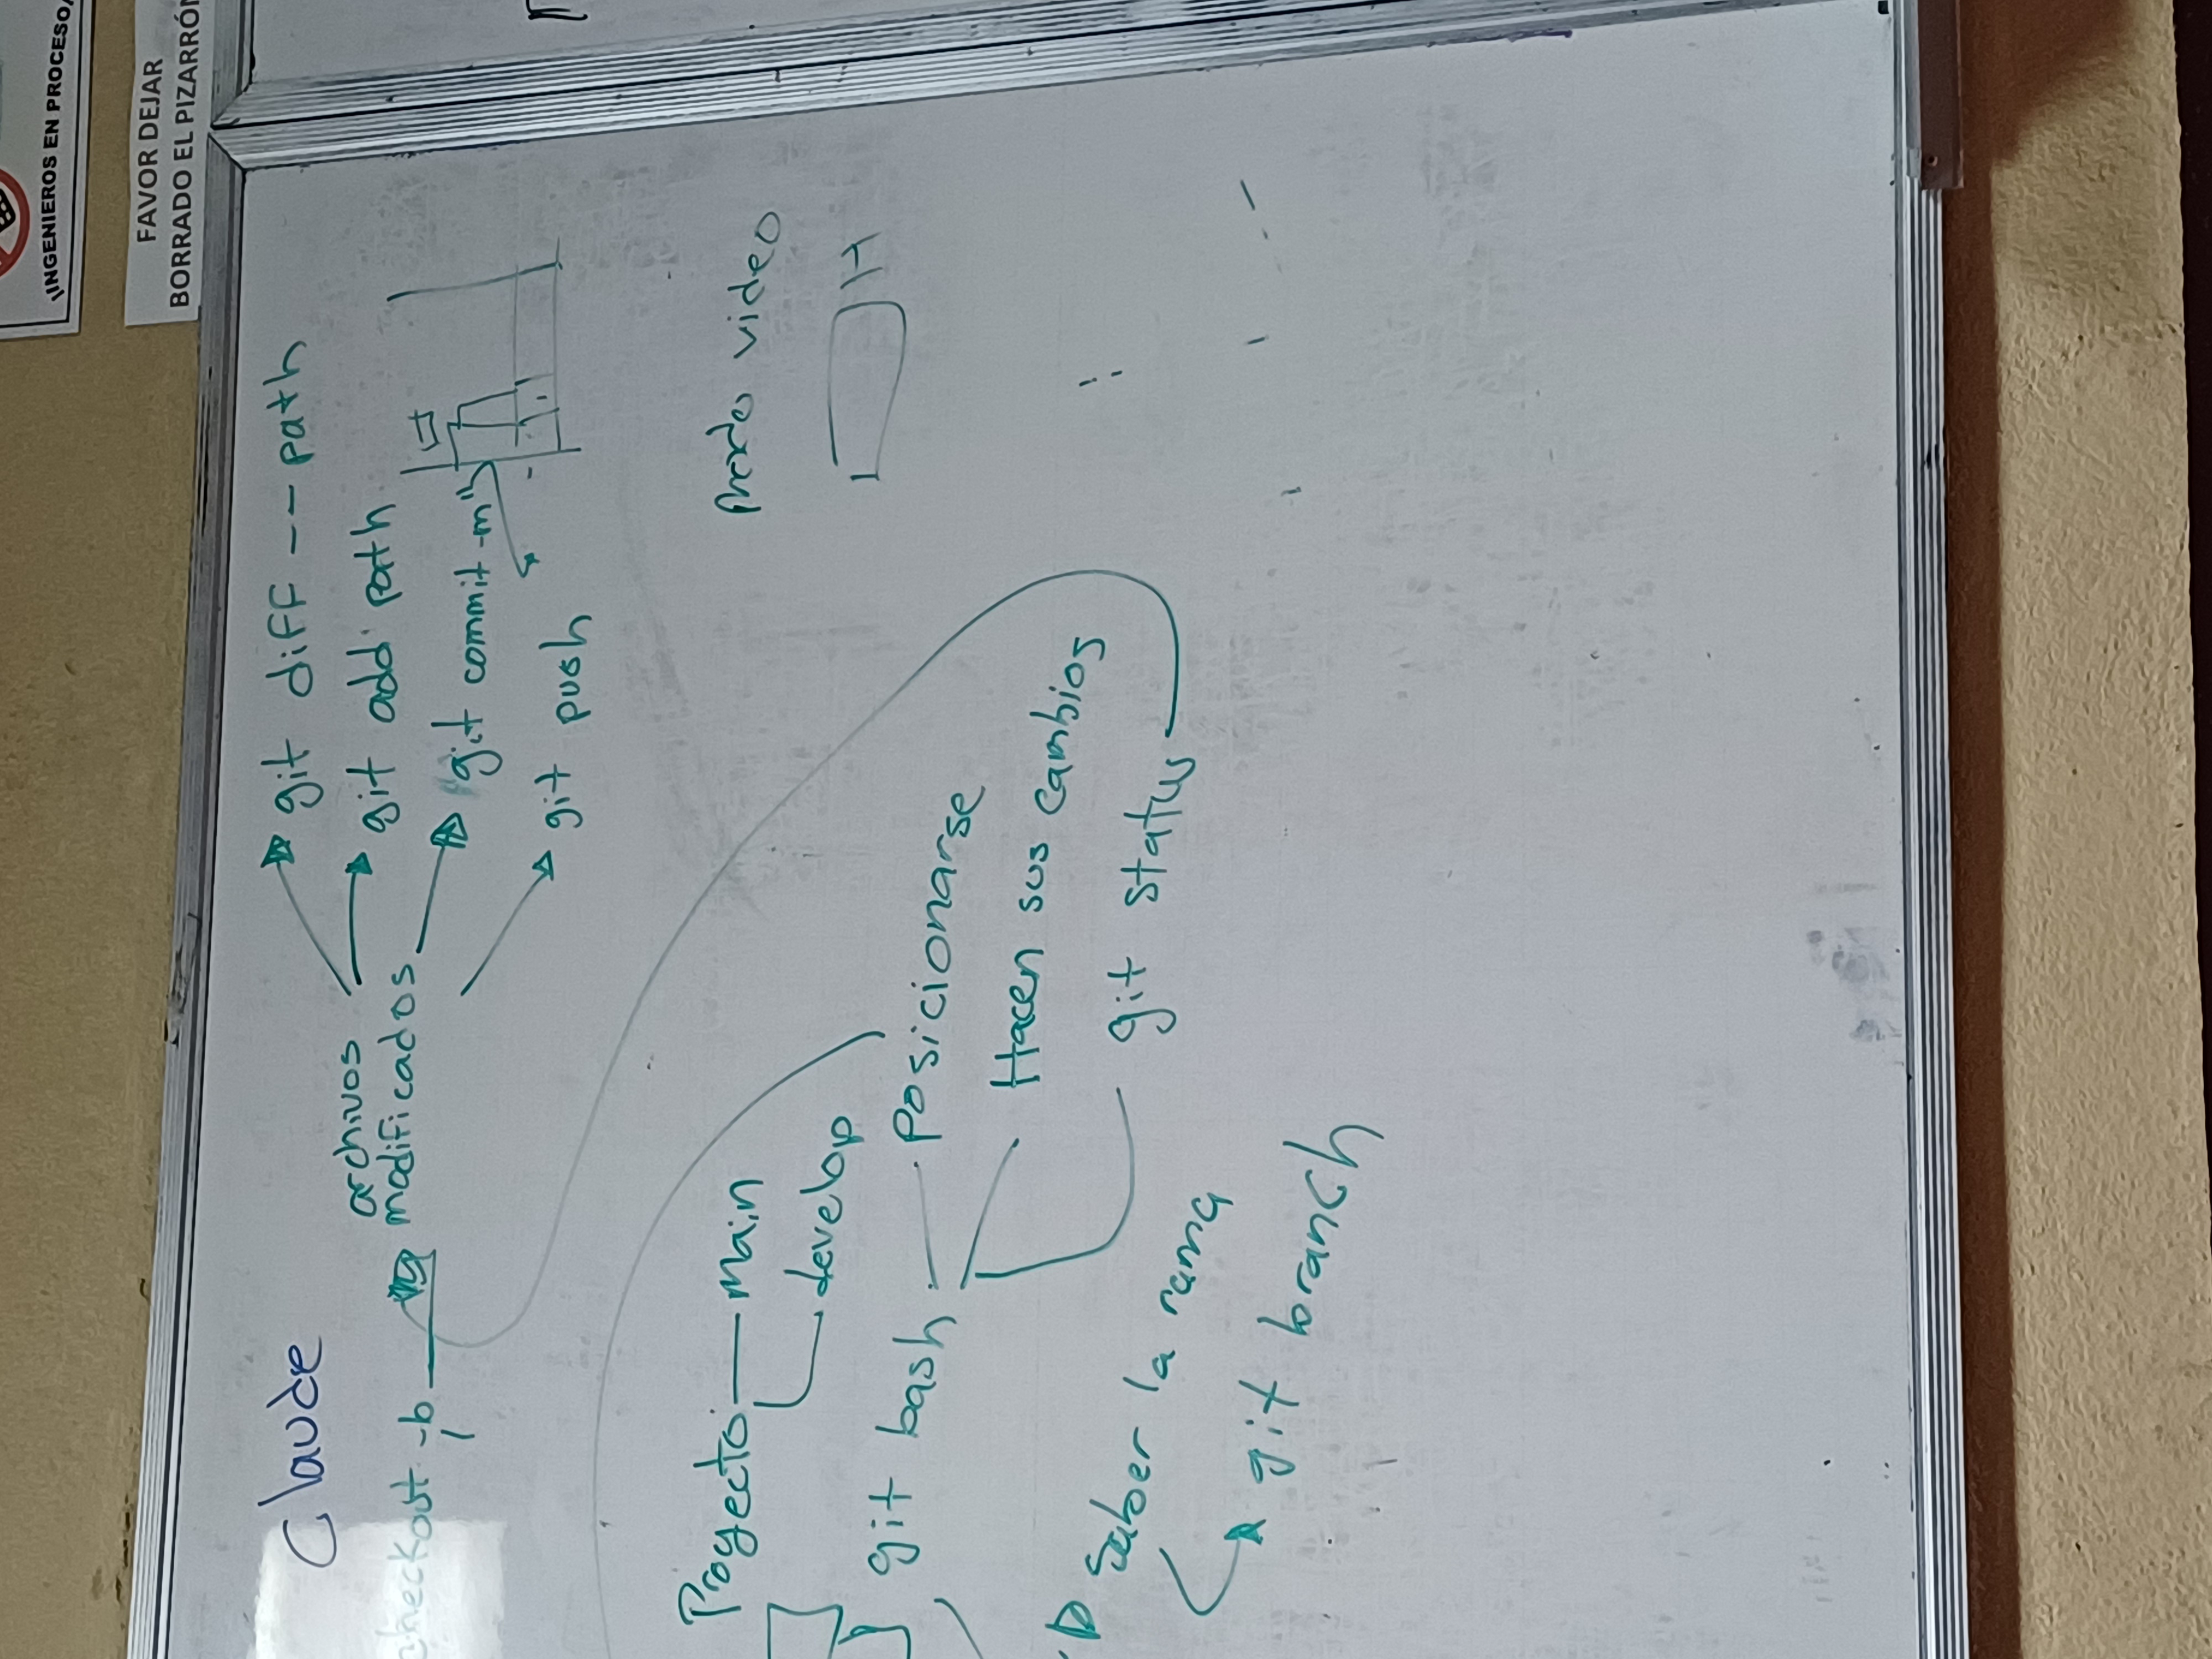 ¡INGENIEROS EN PROCESO
FAVOR DEJAR
BORRADO EL PIZARRÓN
Claude
checkout -b
archivos
modificados
git diff -- path
git add path
git commit -m"
git push
Proyecto
main
develop
git bash
Posicionarse
Hacen sus cambios
git status
Saber la rama
git branch
video